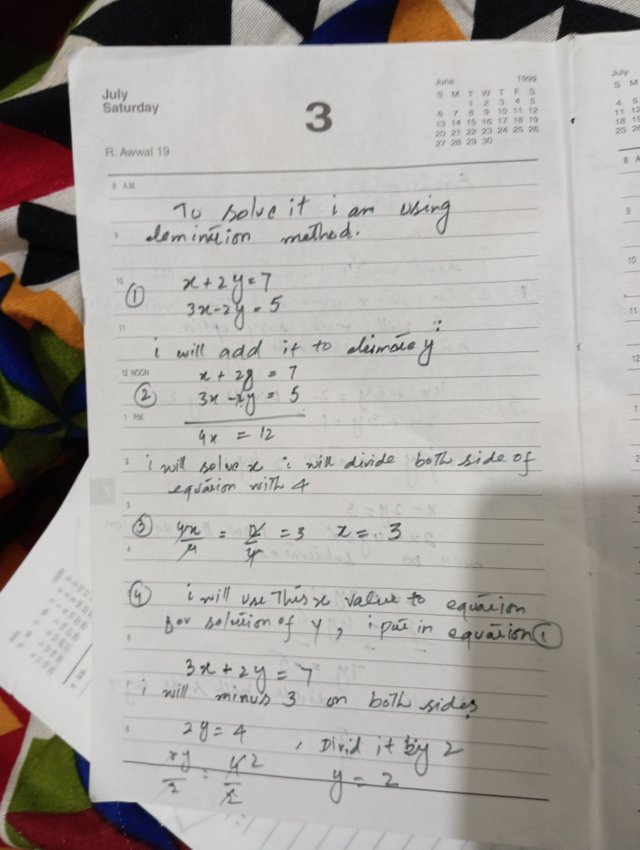 July
Saturday
3
R. Awwal 19
June 1999
S M T W T F S
1 2 3 4 5
6 7 8 9 10 11 12
13 14 15 16 17 18 19
20 21 22 23 24 25 26
27 28 29 30
July
S M
4 5
11 12
18 19
25 26
8 A
9
10
11
12
8 AM.
To solve it i am using
9
elemination method.
10
① x + 2y = 7
3x - 2y = 5
11
i will add it to elimate y
12 NOON
x + 2y = 7
② 3x - 2y = 5
1 P.M.
4x = 12
2
i will solve x i will divide both side of
equasion with 4
3
③ 4x/4 = 12/4 = 3 x = 3
4
④ i will use this x value to equasion
for solution of y, i put in equasion ①
6
3x + 2y = 7
i will minus 3 on both sides
8
2y = 4 , Divid it by 2
2y/2 = 4/2 2 y = 2